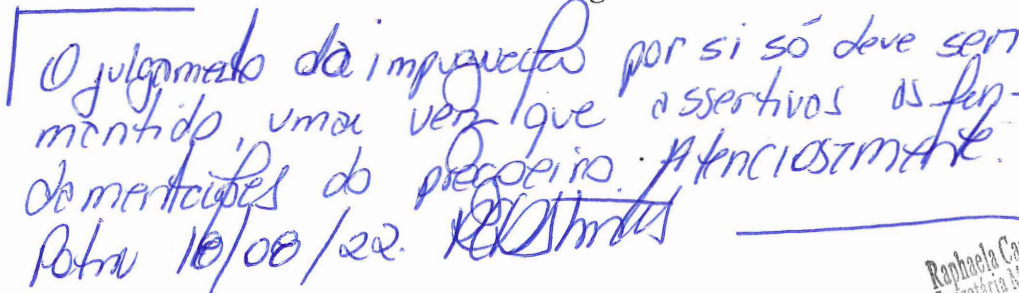 O julgamento da impugnação por si só deve ser
mantido, uma vez que assertivas as fun-
damentações do pregoeiro. Atenciosamente.
18/08/22.
Raphaela